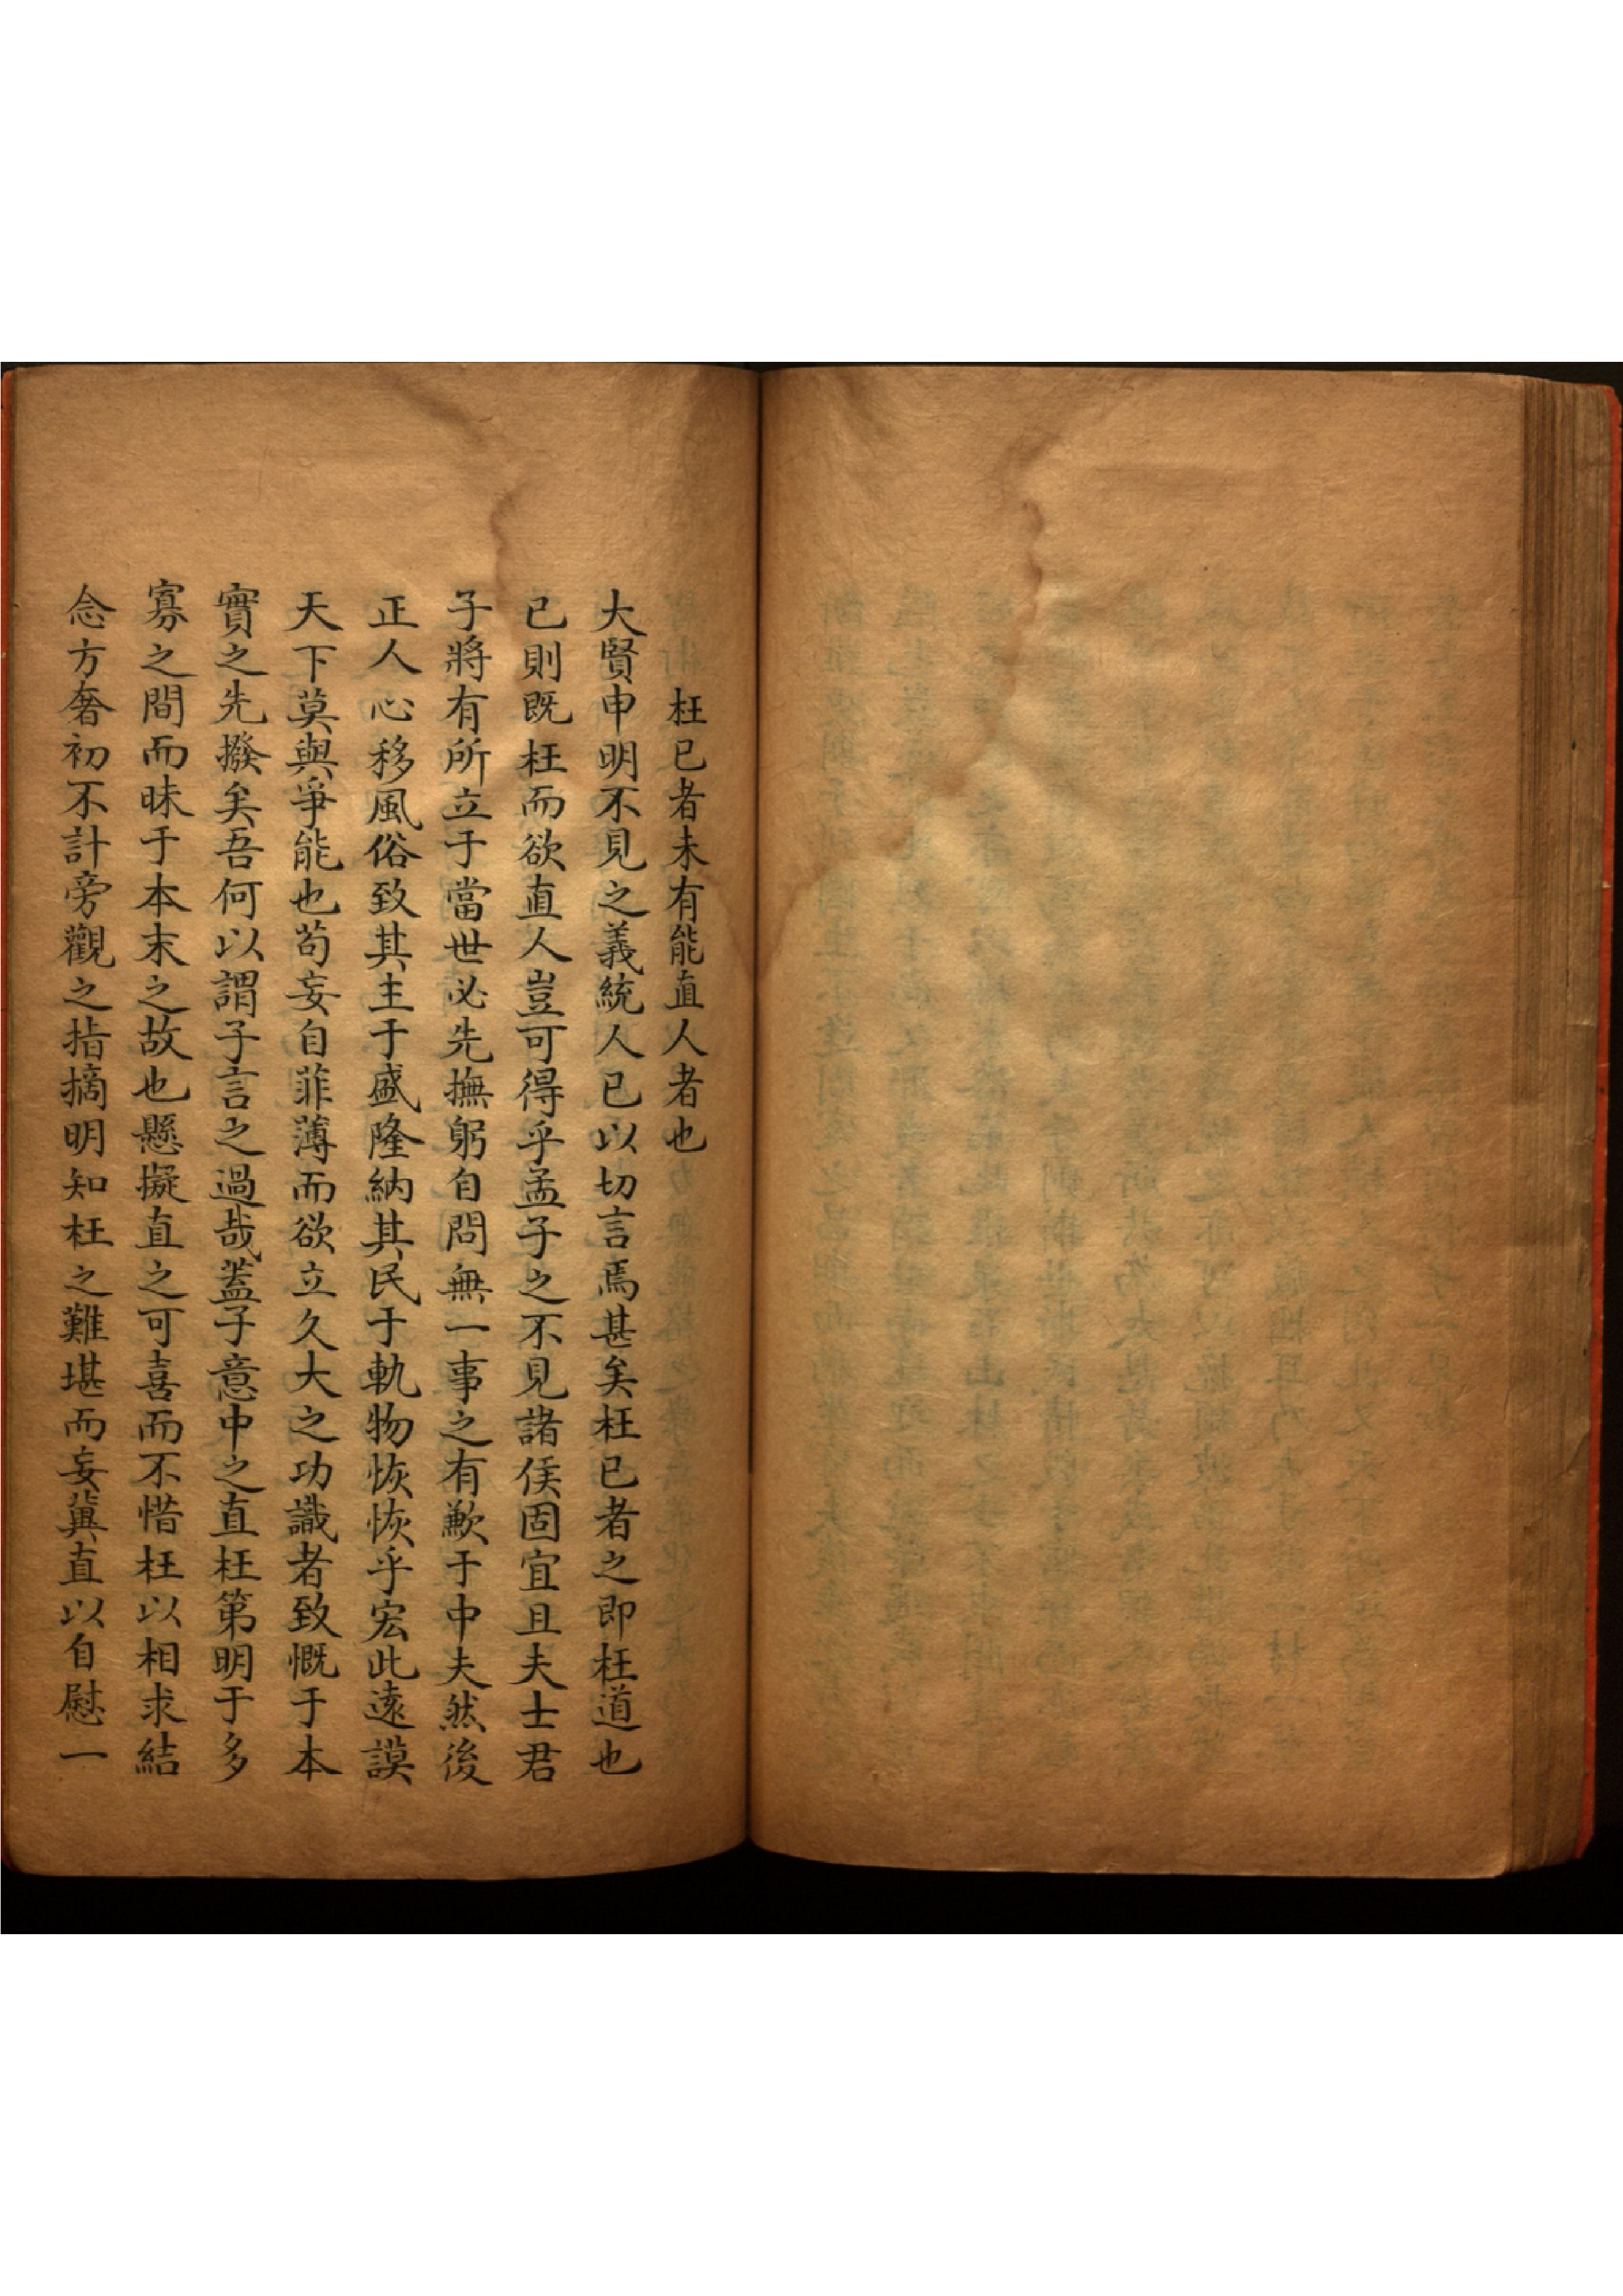 枉已者未有能直人者也
大賢申明不見之義統人已以切言焉甚矣枉已者之即枉道也
已則既枉而欲直人豈可得乎孟子之不見諸侯固宜且夫士君
子將有所立于當世必先撫躬自問無一事之有歉于中夫然後
正人心移風俗致其主于盛隆納其民于軌物恢恢乎宏此遠謨
天下莫與爭能也茍妄自菲薄而欲立久大之功識者致慨于本
實之先撥矣吾何以謂子言之過哉蓋子意中之直枉第明于多
寡之間而昧于本末之故也懸擬直之可喜而不惜枉以相求結
念方奢初不計旁觀之指摘明知枉之難堪而妄冀直以自慰一